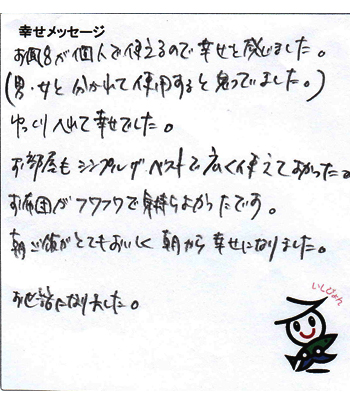 幸せメッセージ
お風呂が個人で使えるので幸せと感じました。
(男・女と分かれて使用すると思っていました。)
ゆっくり入れて幸せでした。
お部屋もシンプルがベストで広く使えてよかった。
お布団がフワフワで気持ちよかったです。
朝ご飯がとてもおいしく朝から幸せになりました。
お世話になりました。
いしぴょん